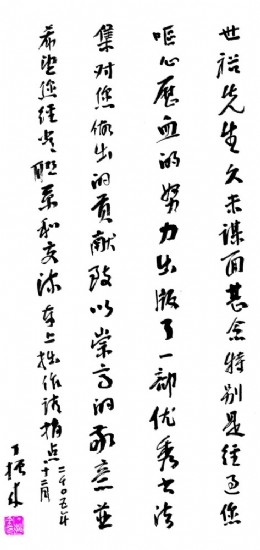 世裕先生久未谋面甚念特别是经过您
呕心历血的努力出版了一部优秀书法
集对您做出的贡献致以崇高的敬意並
希望您经常联系和交流奉上拙作请指点
二〇〇五年
十二月
丁振来